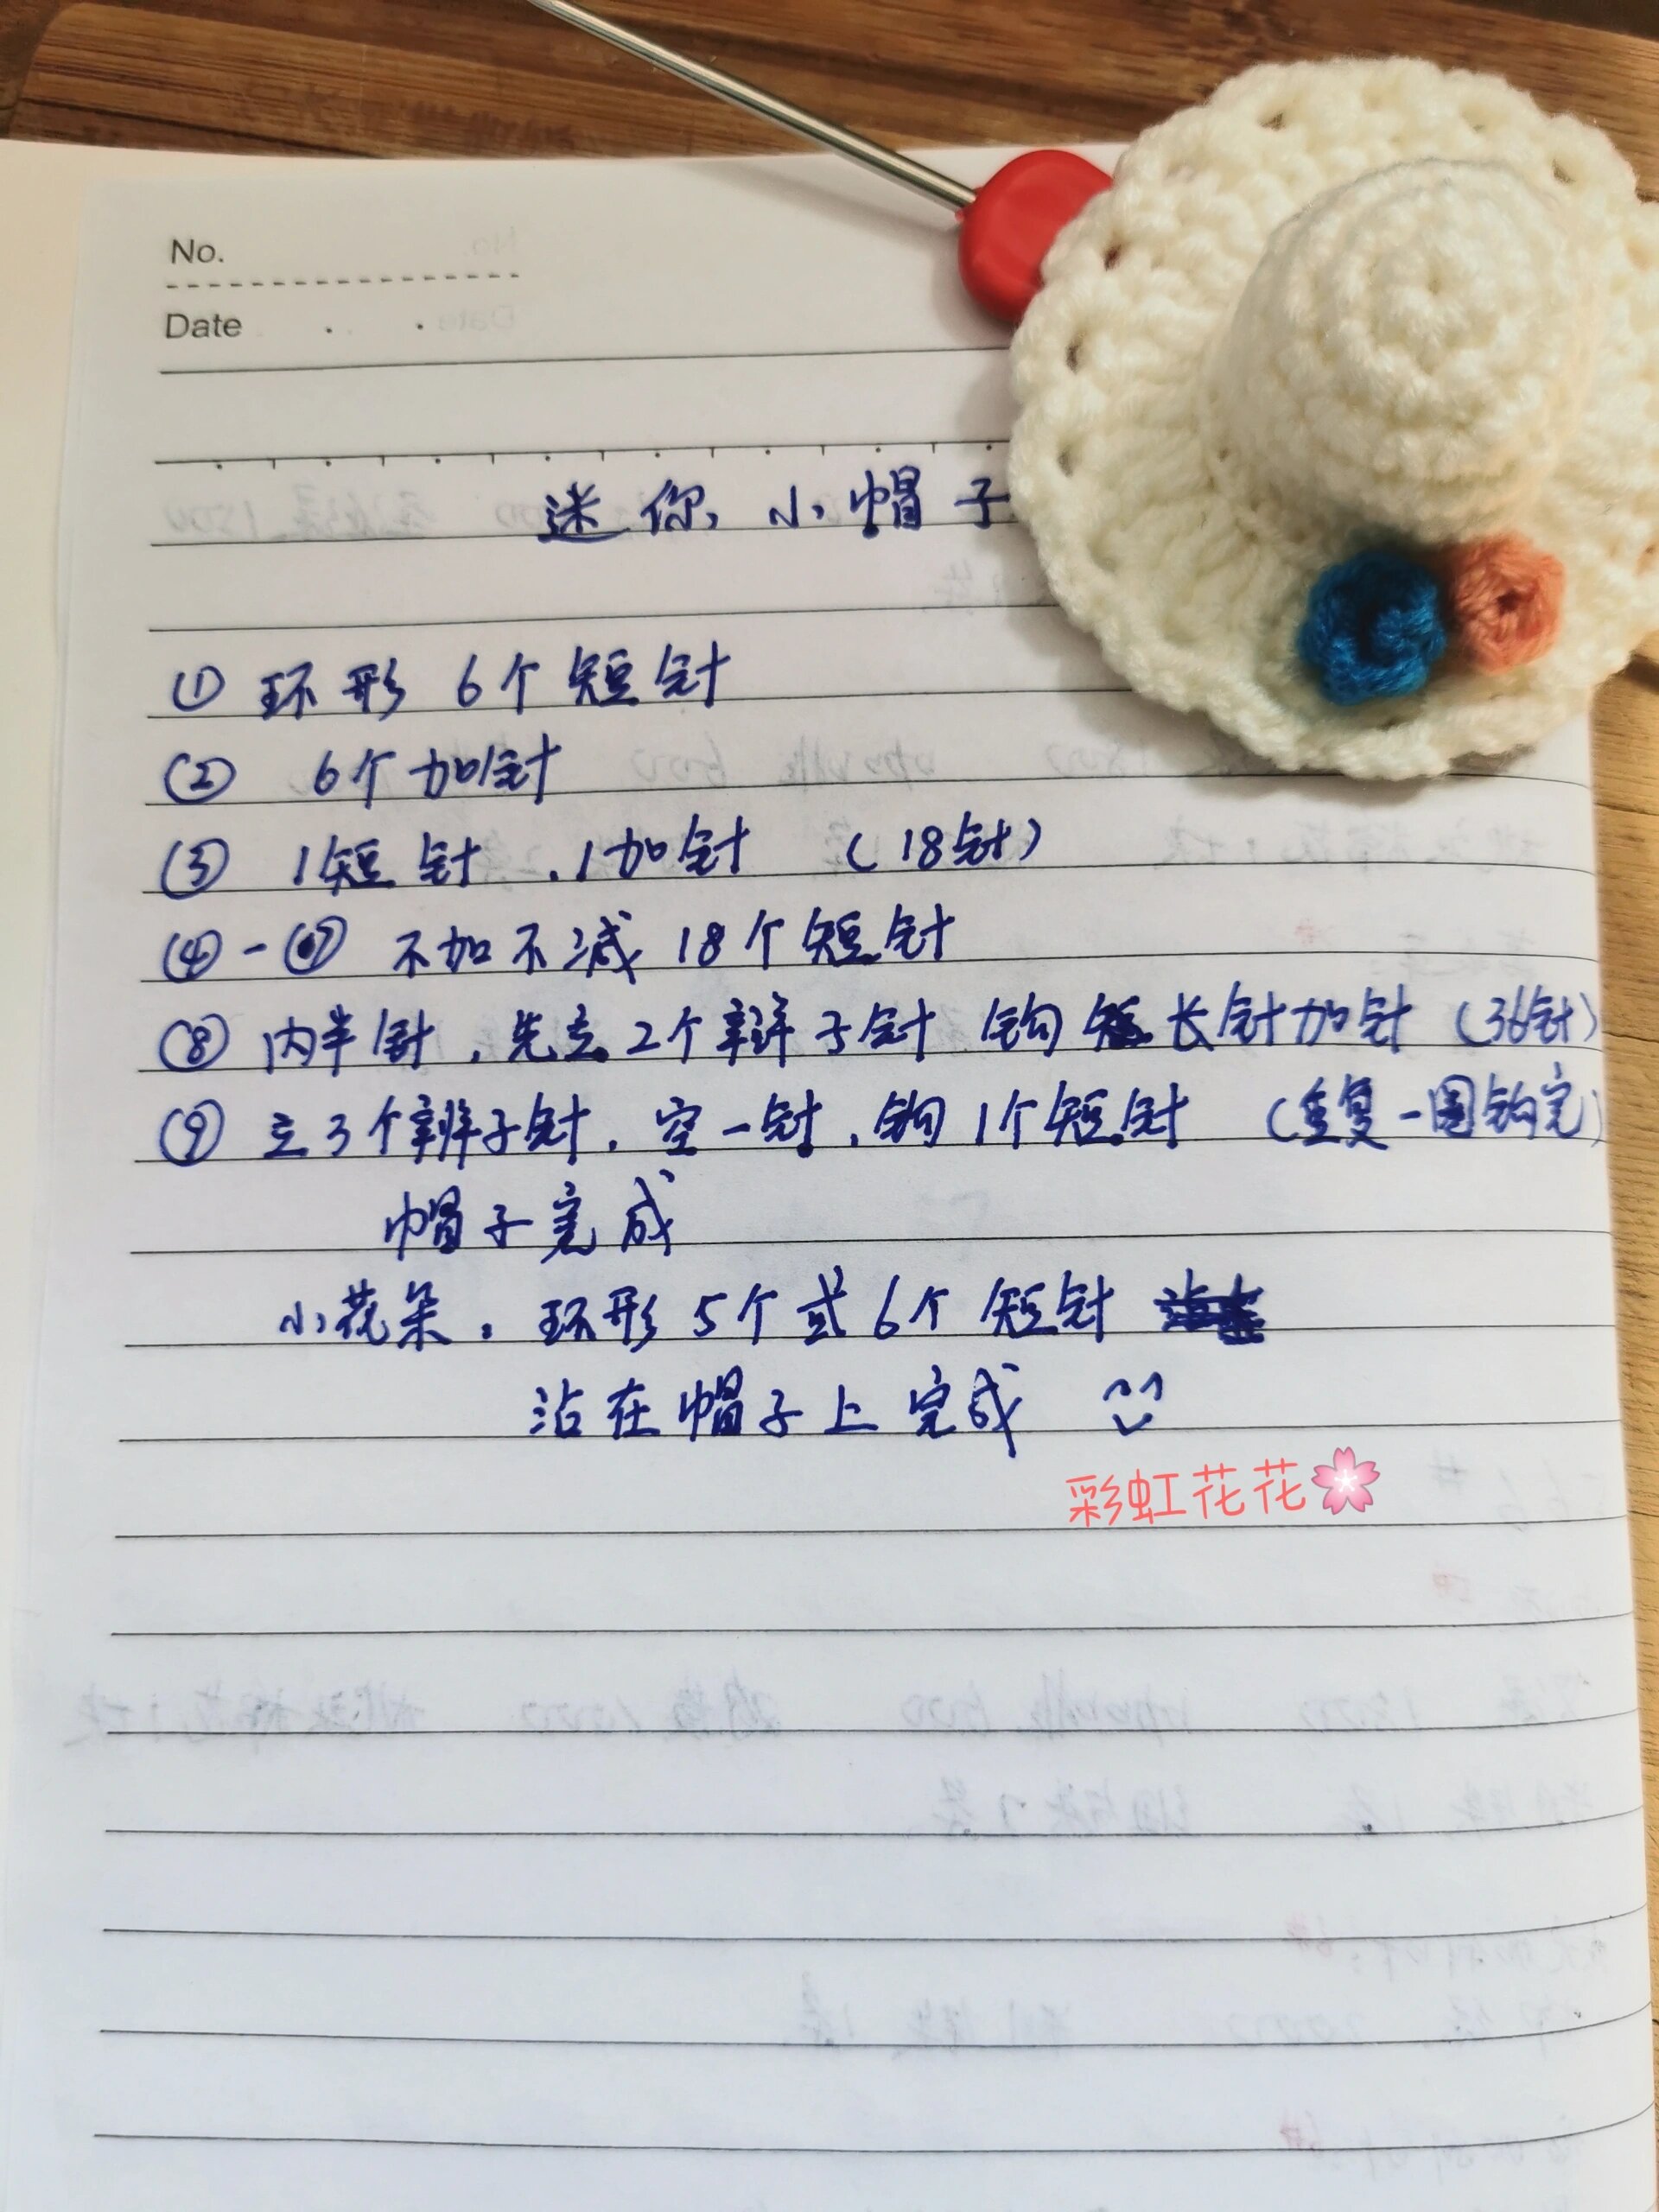 No.
Date
迷你小帽子
① 环形 6个短针
② 6个加针
③ 1短针,1加针 (18针)
④-⑦ 不加不减 18个短针
⑧ 内半针,先立2个辫子针 钩 长针加针 (36针)
⑨ 立3个辫子针,空一针,钩1个短针 (重复一圈钩完)
帽子完成
小花朵。环形5个或6个短针
沾在帽子上完成
彩虹花花🌸